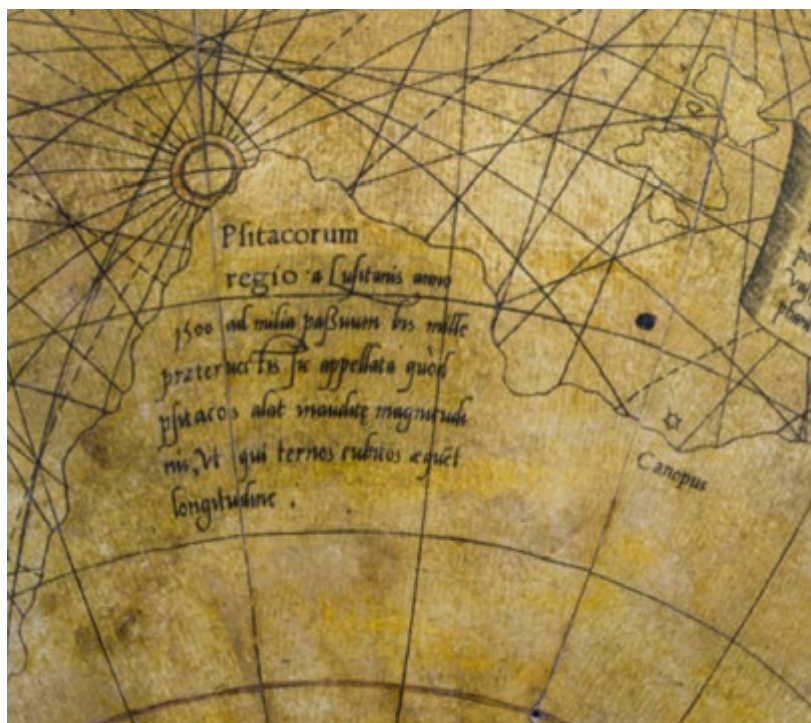 Pſitacorum
regio a Luſitanis anno
1500 ad milia paßuum bis mille
præteruectis ſic appellata quòd
pſitacos alat inauditę magnitudi
nis, Vt qui ternos cubitos æquēt
longitudine .
Canopus